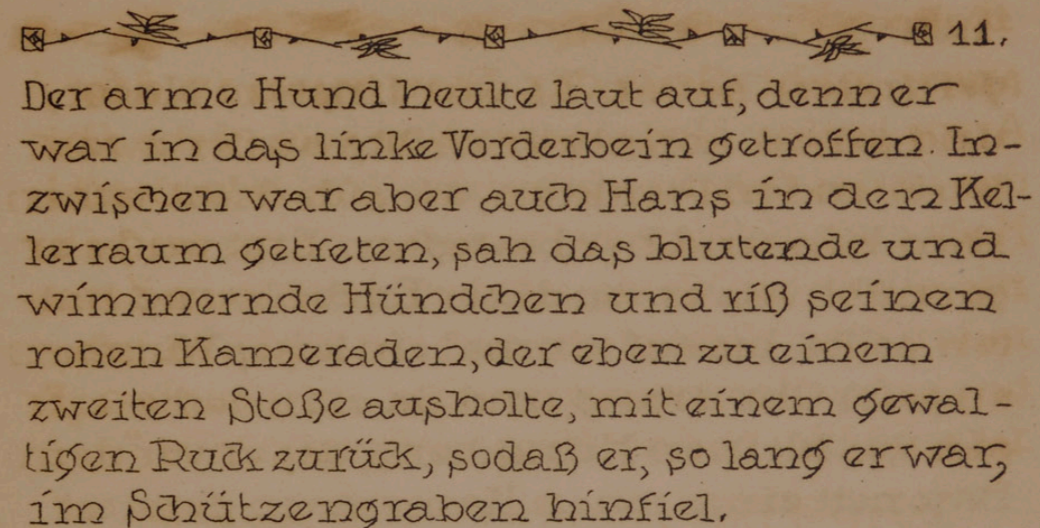 11.
Der arme Hund heulte laut auf, denn er
war in das linke Vorderbein getroffen. In-
zwischen war aber auch Hans in den Kel-
lerraum getreten, sah das blutende und
wimmernde Hündchen und riß seinen
rohen Kameraden, der eben zu einem
zweiten Stoße ausholte, mit einem gewal-
tigen Ruck zurück, sodaß er, so lang er war,
im Schützengraben hinfiel.